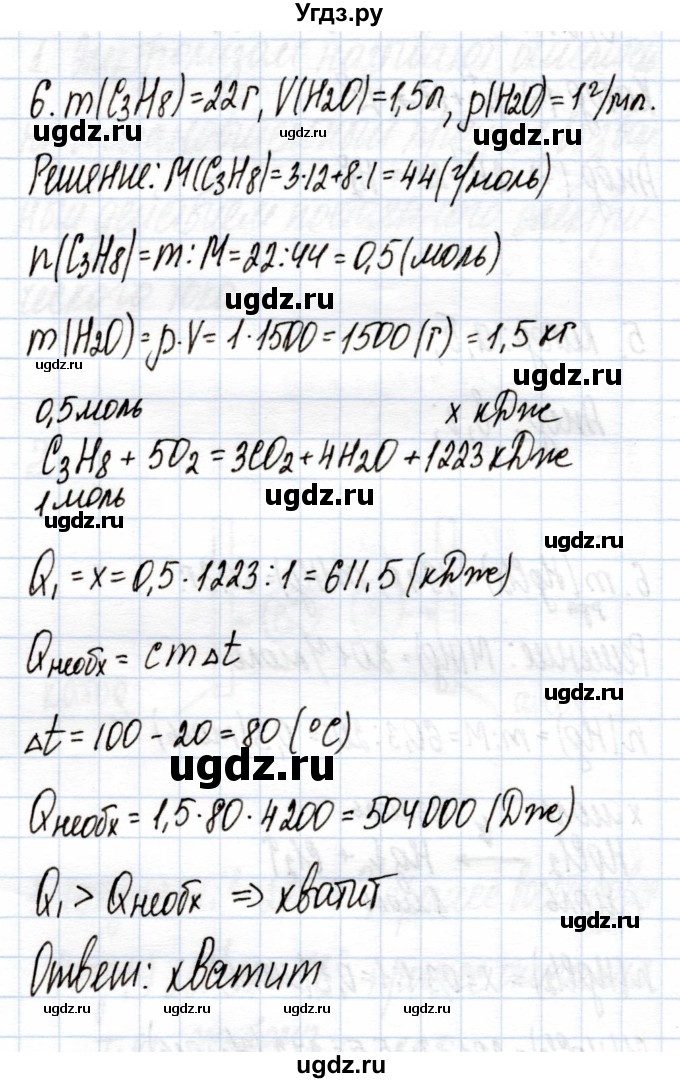 Угдз.ру
6. m(C₃H₈)=22г, V(H₂O)=1,5л, ρ(H₂O)=1г/мл.
ugdz.ru ugdz.ru ugdz.ru
Решение: M(C₃H₈)=3·12+8·1=44(г/моль)
n(C₃H₈)=m:M=22:44=0,5(моль)
ugdz.ru
m(H₂O)=ρ·V=1·1500=1500(г)=1,5кг
ugdz.ru ugdz.ru
0,5моль x кДж
C₃H₈+5O₂=3CO₂+4H₂O+1223кДж
1моль
ugdz.ru ugdz.ru
ugdz.ru
Q₁=x=0,5·1223:1=611,5(кДж)
Qнеобх=cmΔt
ugdz.ru
Δt=100-20=80(°C)
ugdz.ru
Qнеобх=1,5·80·4200=504000(Дж)
Q₁>Qнеобх ⇒ хватит
ugdz.ru
Ответ: хватит
ugdz.ru ugdz.ru ugdz.ru ugdz.ru
ugdz.ru